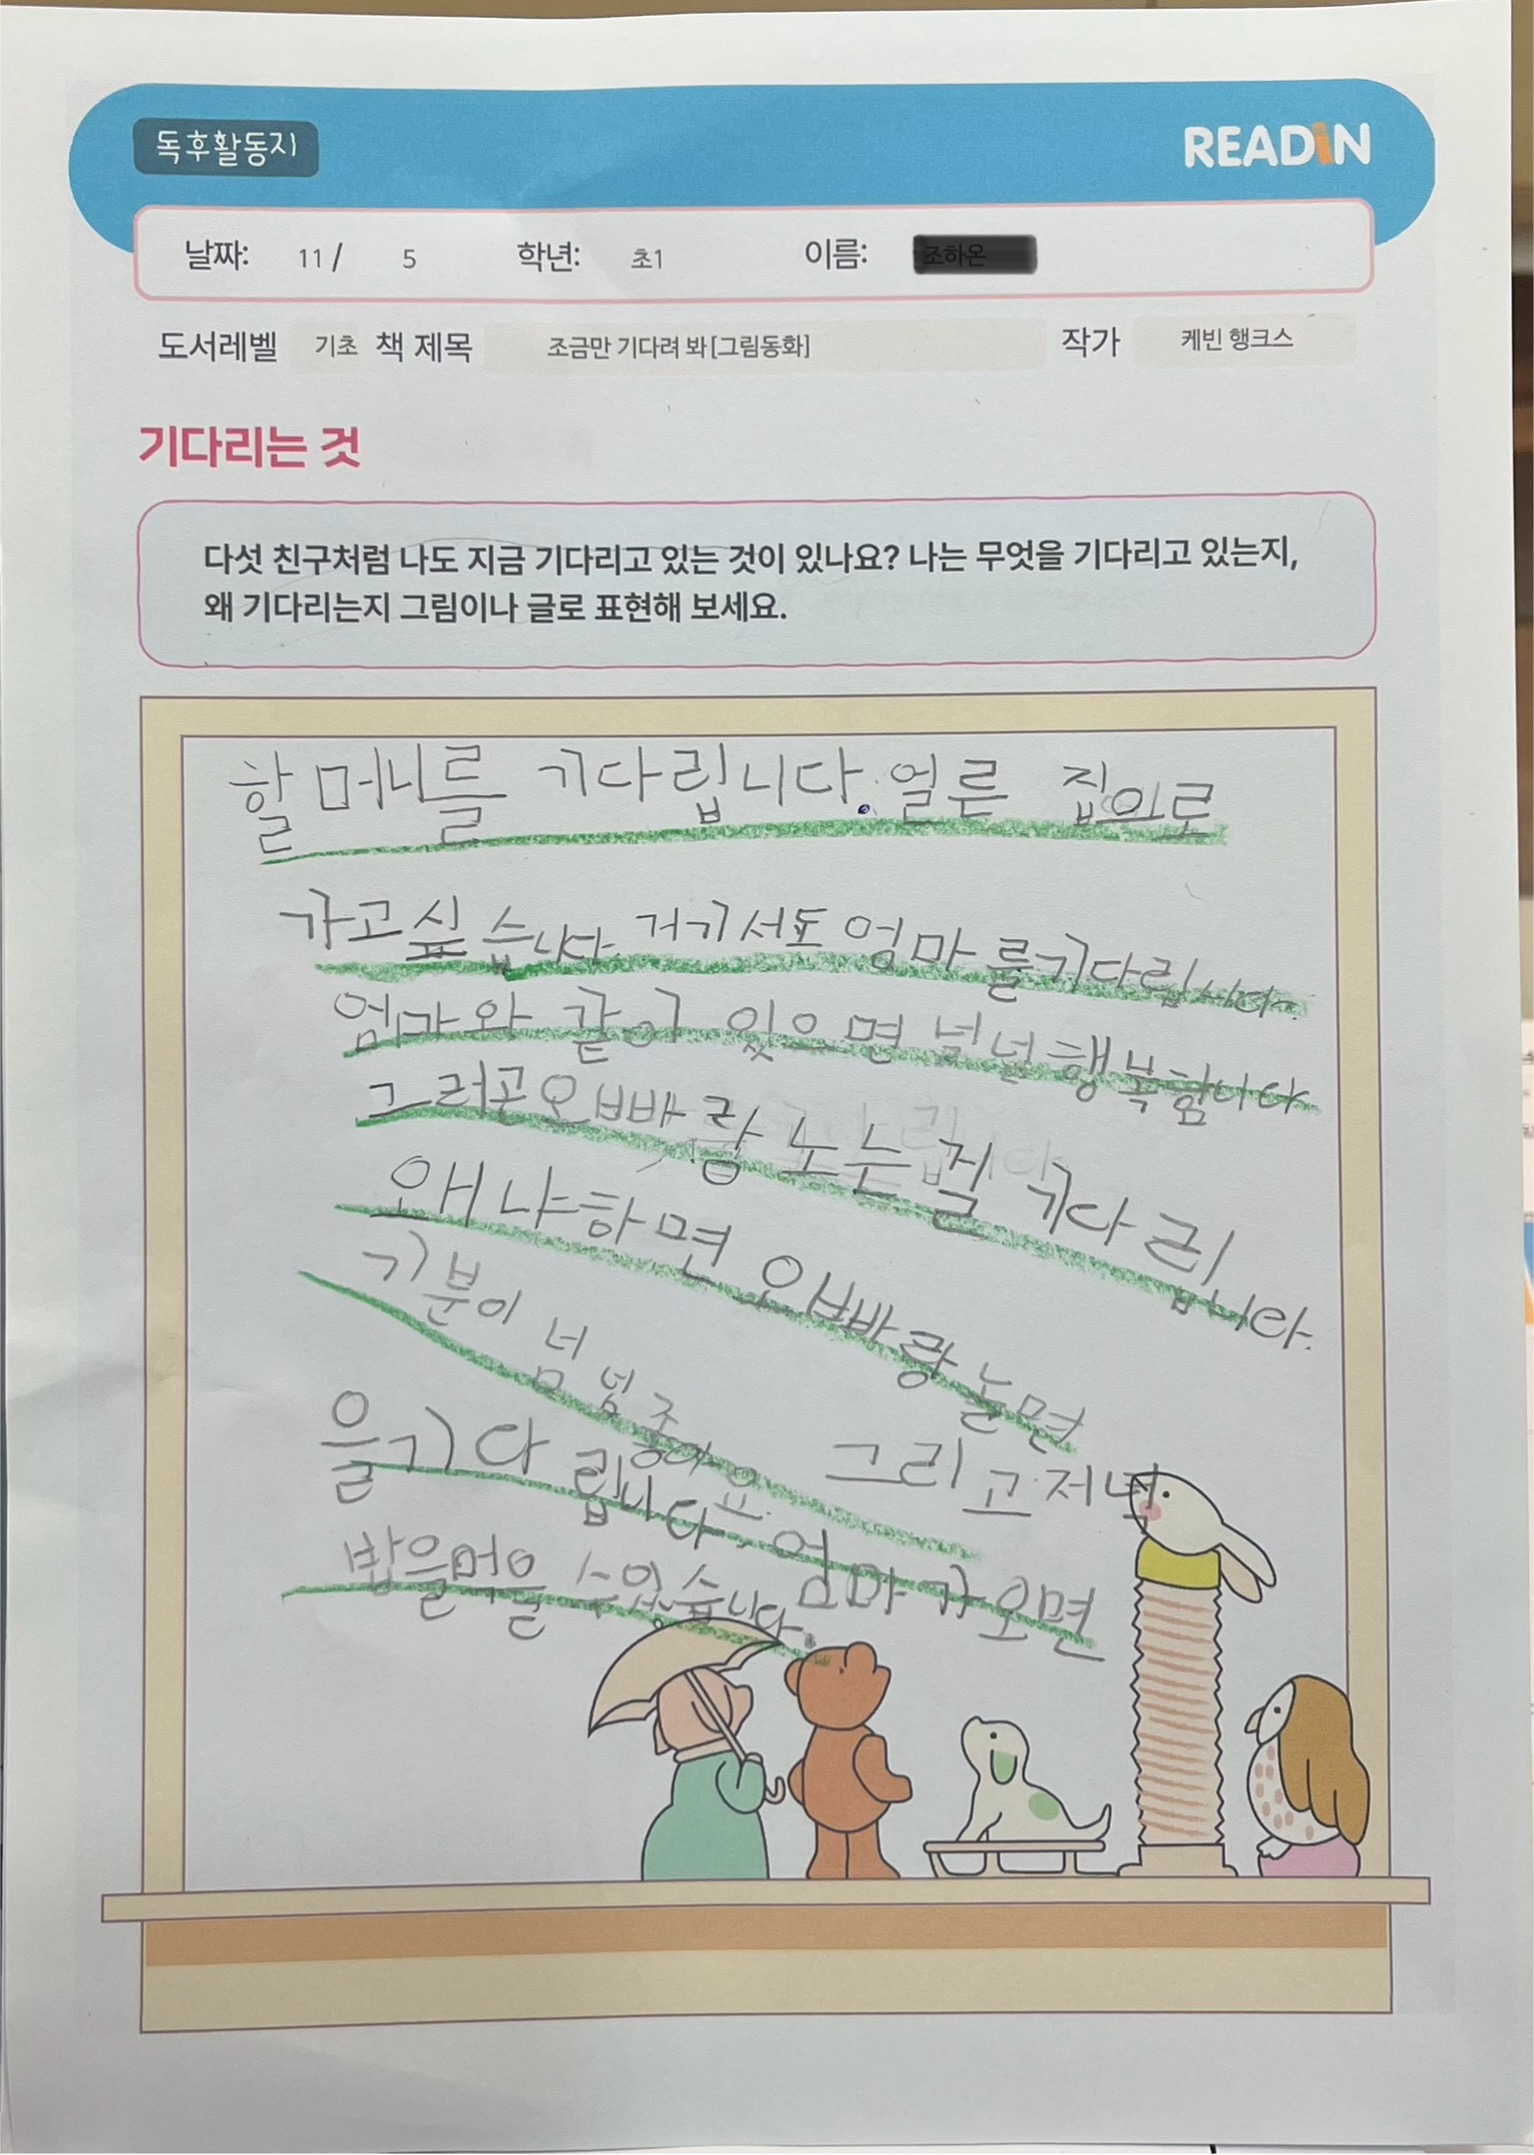 독후활동지
READiN
날짜: 11 / 5 학년: 초1 이름:
도서레벨 기초 책 제목 조금만 기다려 봐[그림동화] 작가 케빈 행크스
기다리는 것
다섯 친구처럼 나도 지금 기다리고 있는 것이 있나요? 나는 무엇을 기다리고 있는지,
왜 기다리는지 그림이나 글로 표현해 보세요.
할머니를 기다립니다. 얼른 집으로
가고싶습니다. 거기서도 엄마를기다립니다.
엄마와 같이 있으면 넘넘행복합니다
그러곤오빠랑 노는 걸 기다립니다.
왜냐하면 오빠랑 놀면
기분이 넘넘 좋아요. 그리고저녁
을기다립니다. 엄마가오면
밥을먹을 수있습니다.